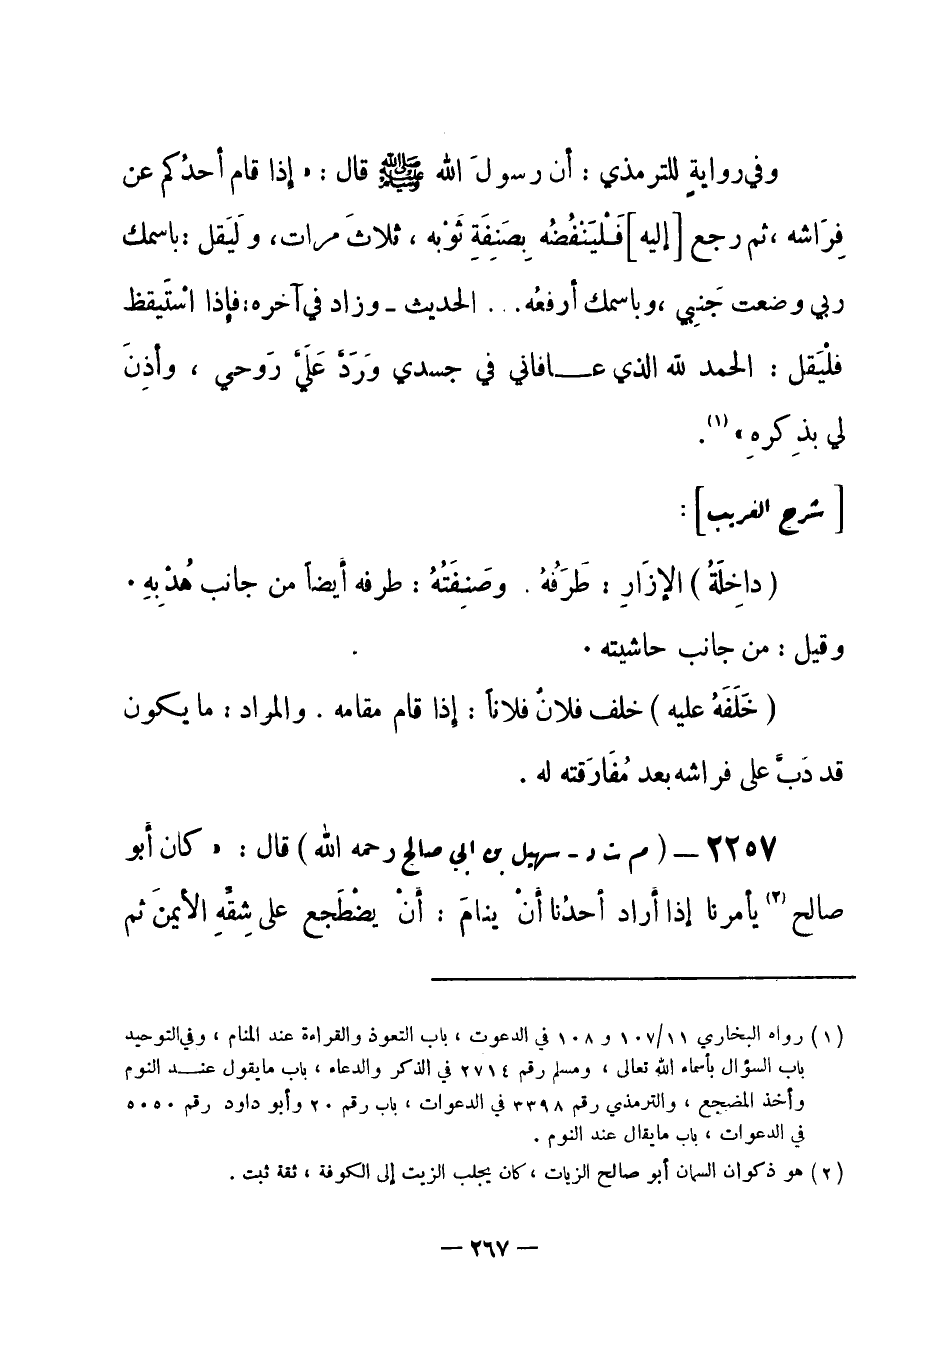 وفي رواية للترمذي : أن رسولَ الله ﷺ قال : « إذا قام أحدُكم عن
فِرَاشه ، ثم رجع [إليه] فَلْيَنْفُضْهُ بِصَنِفَةِ ثَوْبه ، ثلاثَ مرات ، وَلْيَقل : باسمك
ربي وضعت جَنبِي ، وباسمك أرفعُه ... الحديث ـ وزاد في آخره : فإذا اسْتَيقظ
فلْيَقل : الحمد لله الذي عـافاني في جسدي وَرَدَّ عَلَيَّ رَوحي ، وأَذِنَ
لي بذِكرهِ » (١) .
[شرح الغريب] :
( داخِلَةُ ) الإزَارِ : طَرَفُهُ . وصَنِفَتُهُ : طرفه أيضاً من جانب هُدْبِهِ .
وقيل : من جانب حاشيته .
( خَلَفَهُ عليه ) خلف فلانٌ فلاناً : إذا قام مقامه . والمراد : ما يكون
قد دَبَّ على فراشه بعد مُفَارَقته له .
٢٢٥٧ ــ ( م ت د ـ سهيل بن أبي صالح رحمه الله ) قال : « كان أبو
صالح (٢) يأمرنا إذا أراد أحدُنا أنْ ينامَ : أنْ يضْطَجع على شِقِّهِ الأيمنَ ثم
(١) رواه البخاري ١١/١٠٧ و ١٠٨ في الدعوت ، باب التعوذ والقراءة عند المنام ، وفي التوحيد
باب السؤال بأسماء الله تعالى ، ومسلم رقم ٢٧١٤ في الذكر والدعاء ، باب مايقول عنـد النوم
وأخذ المضجع ، والترمذي رقم ٣٣٩٨ في الدعوات ، باب رقم ٢٠ وأبو داود رقم ٥٠٥٠
في الدعوات ، باب مايقال عند النوم .
(٢) هو ذكوان السمان أبو صالح الزيات ، كان يجلب الزيت إلى الكوفة ، ثقة ثبت .
— ٢٦٧ —